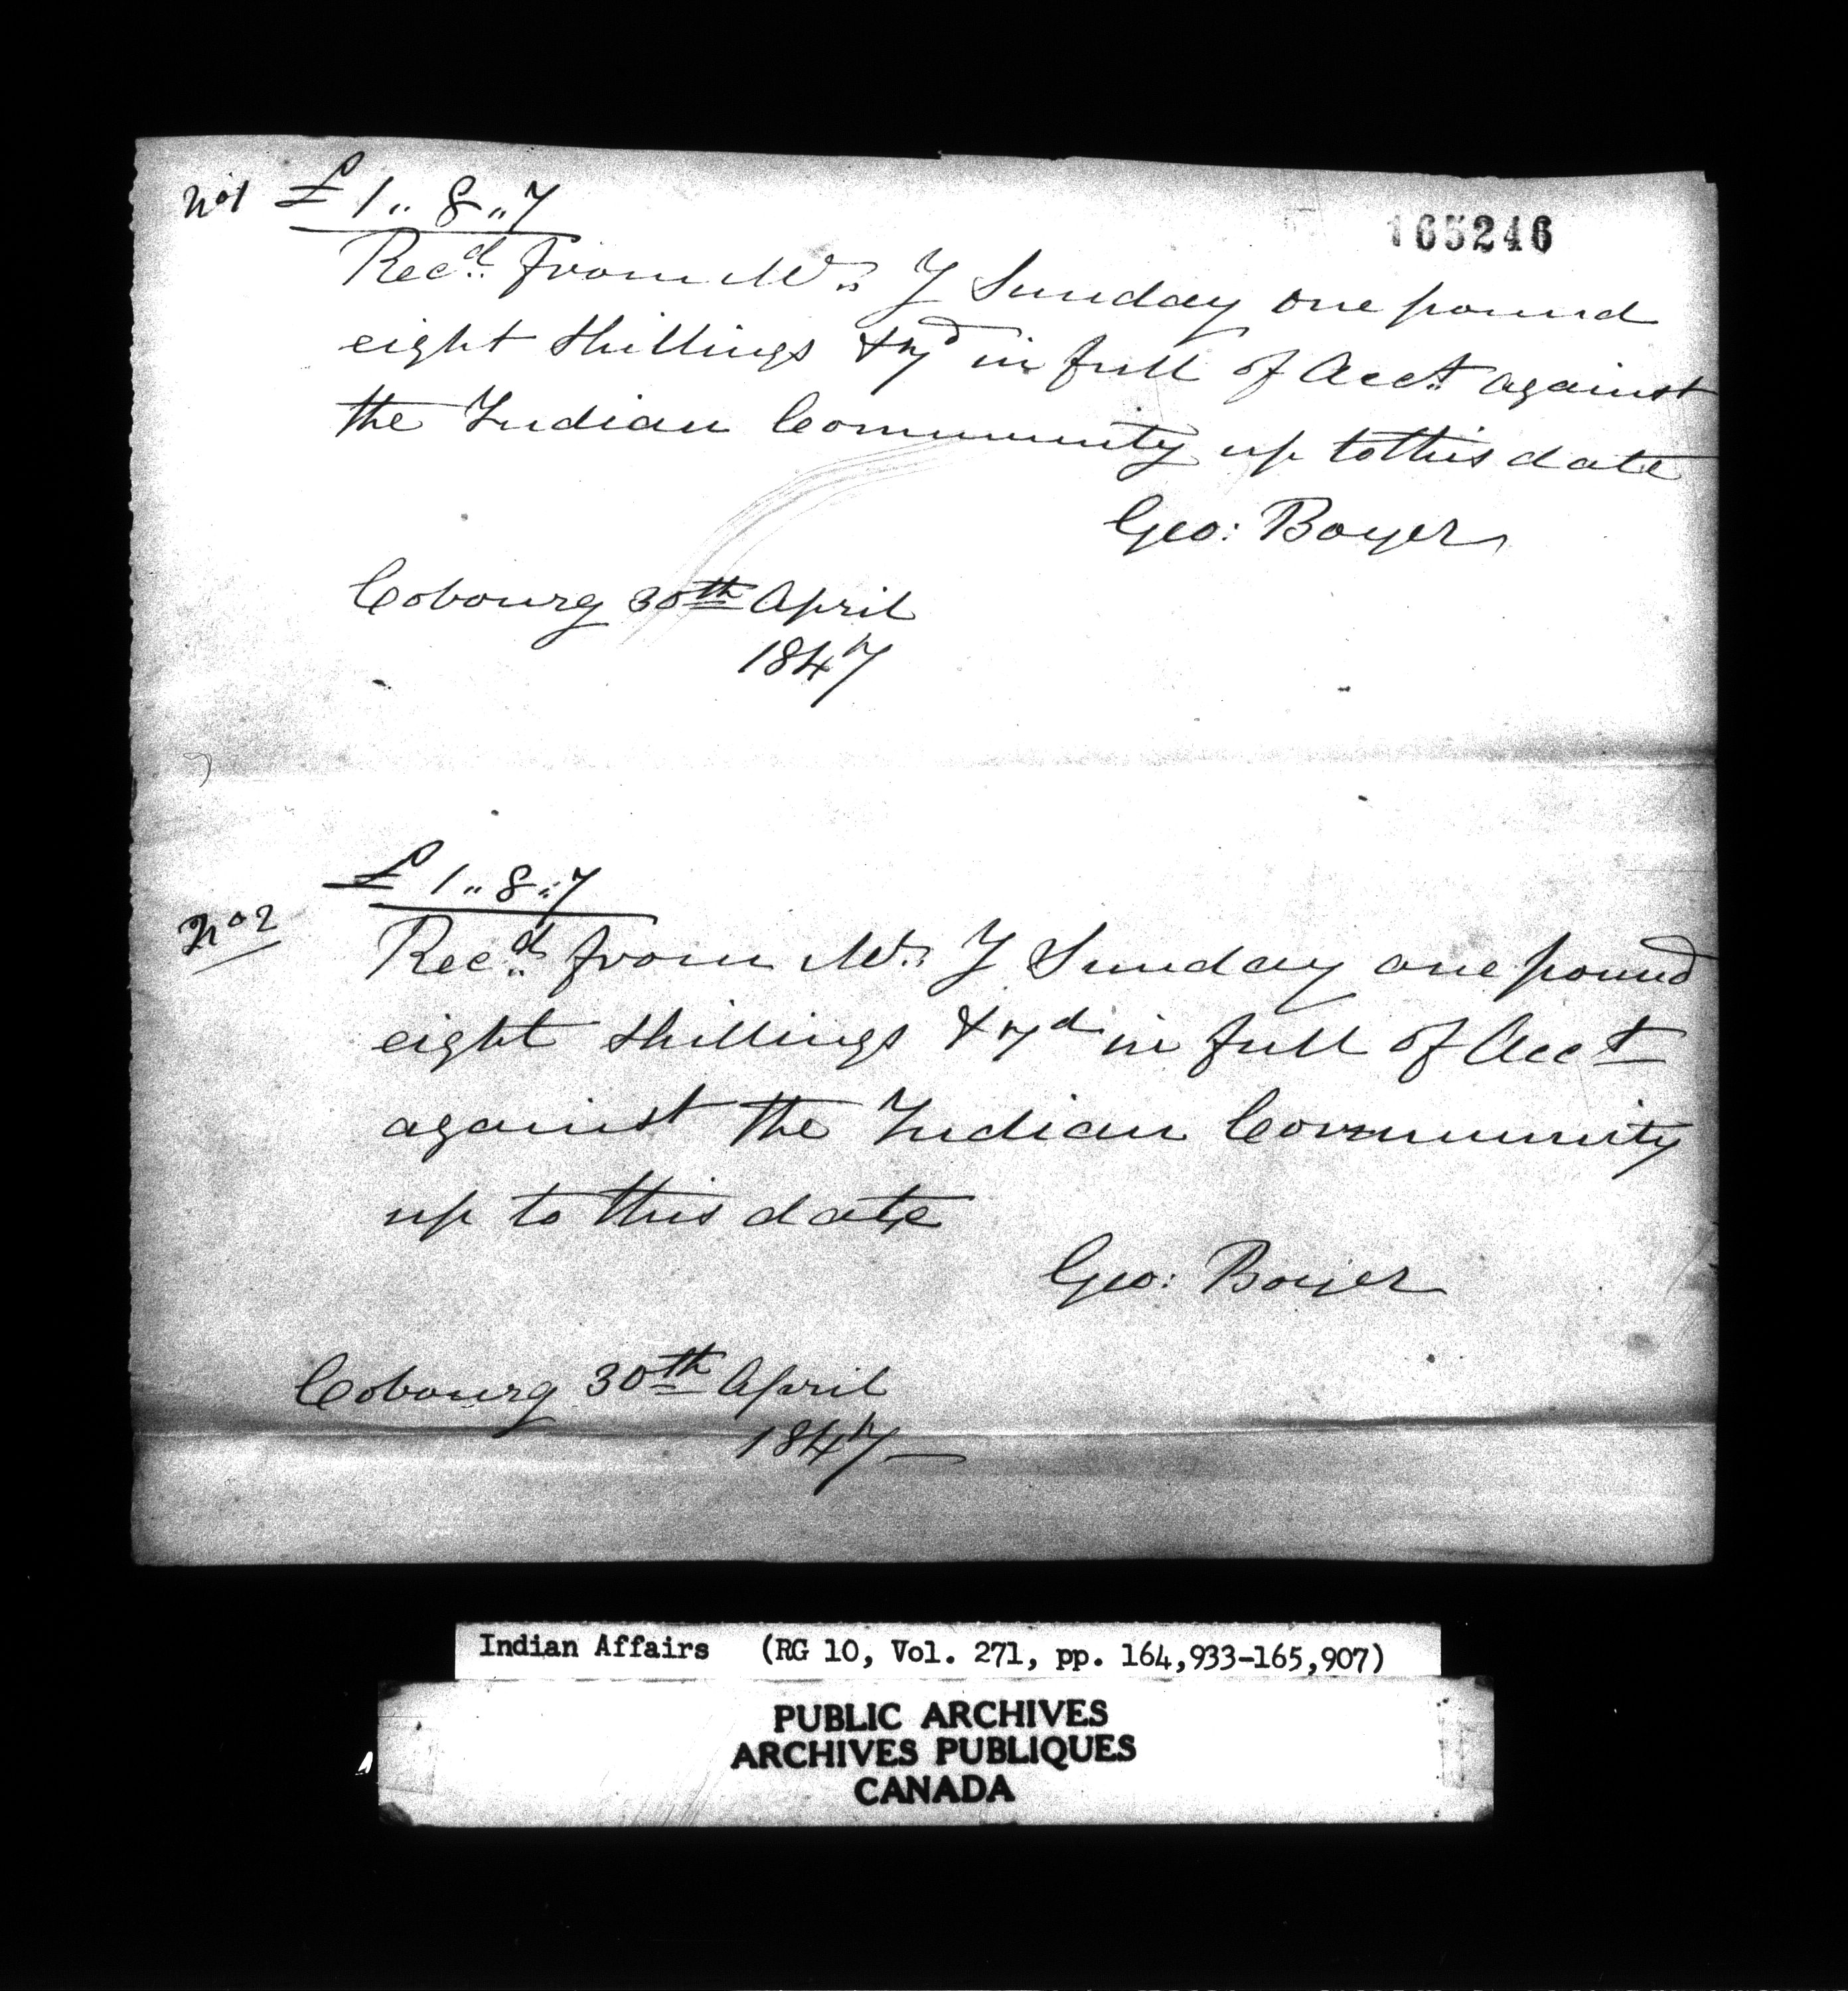 No 1 £ 1 " 8 " 7
165246
Recd. from Mr. J Sunday one pound
eight shillings & 7d in full of Acct. against
the Indian Community up to this date
Geo: Boyer
Cobourg 30th April
1847
£ 1 " 8 " 7
No 2
Recd. from Mr. J Sunday one pound
eight shillings & 7d in full of Acct
against the Indian Community
up to this date
Geo: Boyer
Cobourg 30th April
1847
Indian Affairs (RG 10, Vol. 271, pp. 164,933-165,907)
PUBLIC ARCHIVES
ARCHIVES PUBLIQUES
CANADA